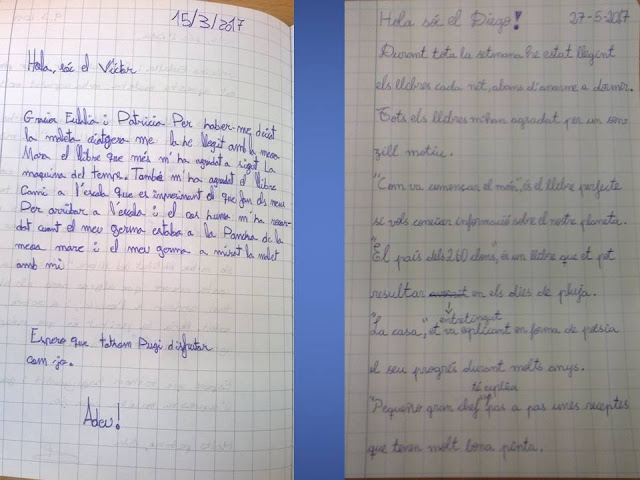 15/3/2017
Hola, sóc el Víctor
Gracies Eulàlia i Patricia Per haber-me deixat
la maleta me la he llegit amb la meva
Mara el llibre que més m'ha agradat a sigut La
maquina del temps. També m'ha agradat el llibre
Cami a l'escola que es impresinant el que fan els nens
Per arribar a l'escola i el cos huma m'ha recor-
dat cuant el meu germa estaba a la Pancha de la
meva mare i el meu germa a mirat la malet
amb mi
Espero que tothom Pugi disfrutar
com jo.
Adeu!
Hola sóc el Diego! 27-5-2017
Durant tota la setmana he estat llegint
els llibres cada nit, abans d'anarme a dormir.
Tots els llibres m'han agradat per un sen-
zill motiu.
"Com va començar el món", és el llibre perfecte
si vols coneixer informació sobre el nostre planeta.
"El país dels 260 dons", és un llibre que et pot
resultar en els dies de pluja.
entretingut
"La casa", et va explicant en forma de poesia
el seu progrés durant molts anys.
té explica
"Pequeño gran chef" pas a pas unes receptes
que tenen molt bona pinta.